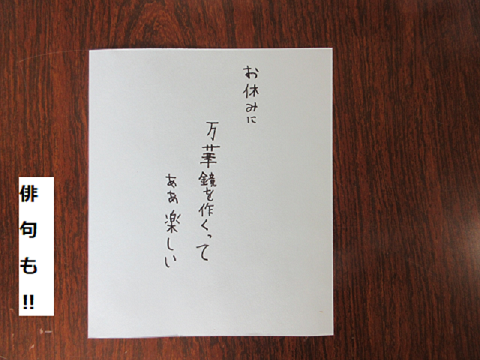 お休みに
万華鏡を作くって
ああ楽しい
俳句も!!